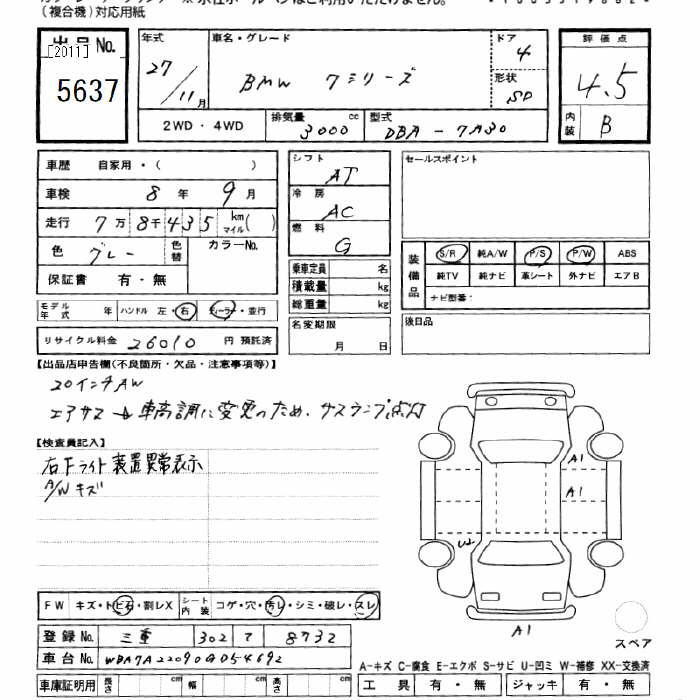 (複合機)対応用紙
出品No.
[2011]
5637
年式 27/11月
車名・グレード BMW 7シリーズ
ドア 4
形状 SD
評価点 4.5
内装 B
2WD・4WD
排気量 3000 cc
型式 DBA-7A30
車歴 自家用・( )
車検 8年 9月
走行 7万8千435 km マイル( )
色 グレー
色替
カラーNo.
保証書 有・無
シフト AT
冷房 AC
燃料 G
乗車定員 名
積載量 kg
総重量 kg
セールスポイント
装備品
S/R 純A/W P/S P/W ABS
純TV 純ナビ 革シート 外ナビ エアB
ナビ型番:
モデル年式 年 ハンドル 左・右 ディーラー・並行
リサイクル料金 26010 円 預託済
名変期限 月 日
後日品
【出品店申告欄(不良箇所・欠品・注意事項等)】
20インチAW
エアサス→車高調に変更のため、サスランプ点灯
【検査員記入】
右下ライト装置異常表示
A/Wキズ
A1
A1
A1
スペア
FW キズ・トビ石・割レX
シート内装 コゲ・穴・汚レ・シミ・破レ・スレ
登録No. 三重 302 て 8732
車台No. WBA7A22090G054692
車庫証明用 長さ cm 幅 cm 高さ cm
A-キズ C-腐食 E-エクボ S-サビ U-凹ミ W-補修 XX-交換済
工具 有・無 ジャッキ 有・無